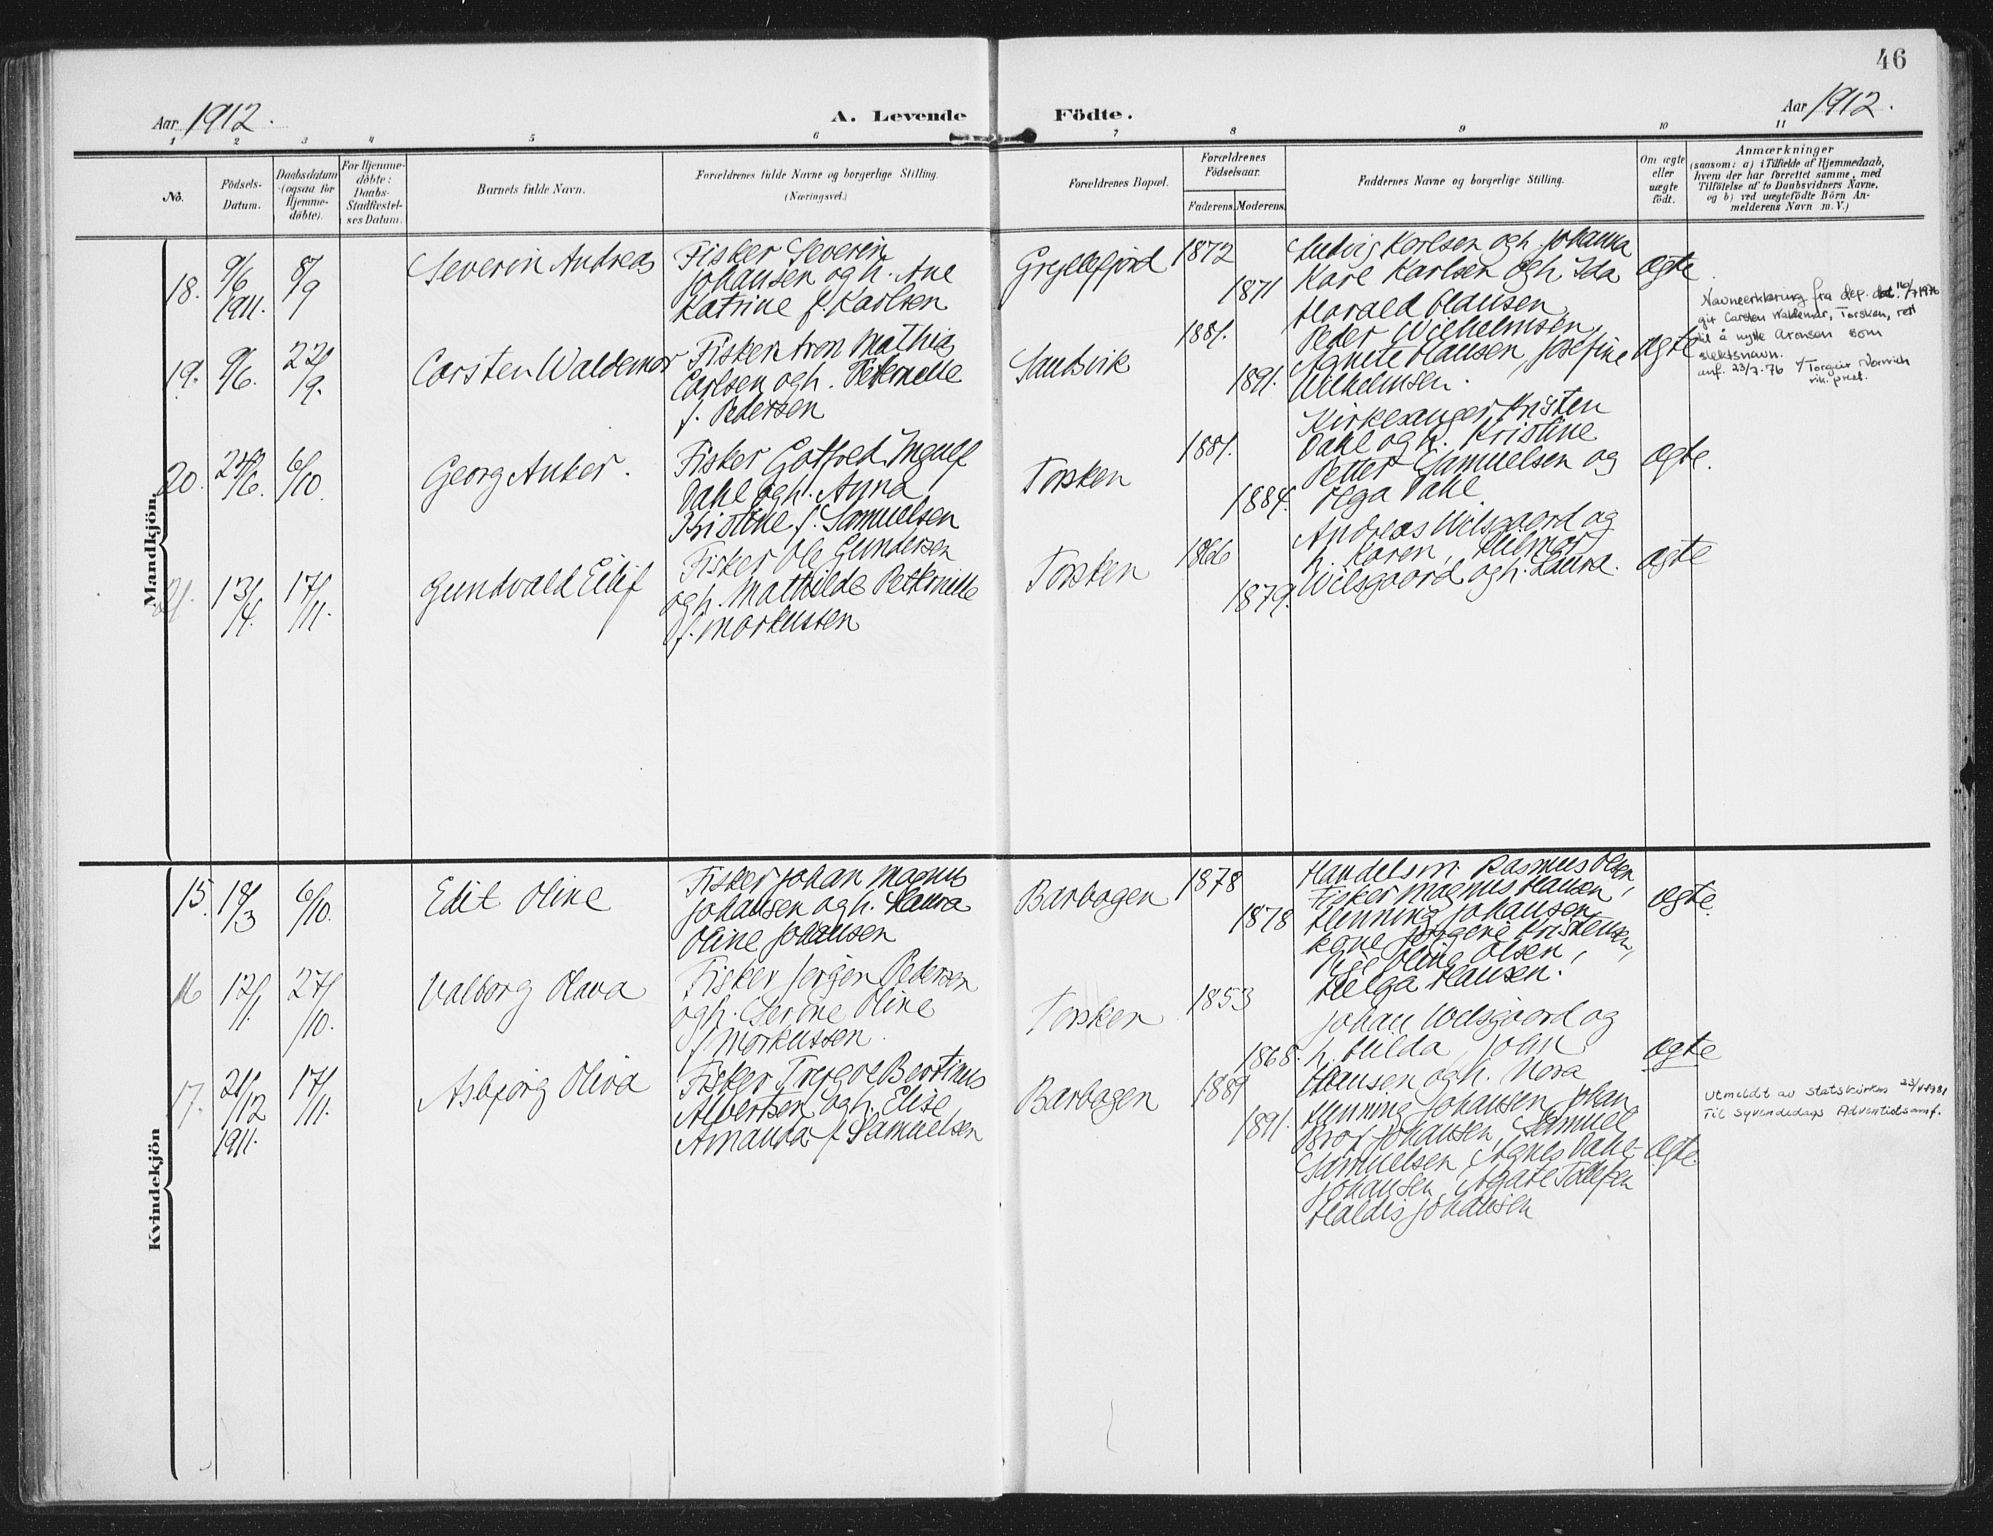 46
Aar 1912.
A. Levende Födte.
Aar 1912.
1 2 3 4 5 6 7 8 9 10 11
No.
Födsels-
Datum.
Daabsdatum
(ogsaa for
Hjemme-
döbte).
For Hjemme-
döbte:
Daabs-
Stadfæstel-
ses Datum.
Barnets fulde Navn.
Forældrenes fulde Navne og borgerlige Stilling.
(Næringsvei.)
Forældrenes Bopæl.
Forældrenes
Födselsaar.
Faderens. Moderens.
Faddernes Navne og borgerlige Stilling.
Om ægte
eller
uægte
födt.
Anmærkninger
(saasom: a) i Tilfælde af Hjemmedaab,
hvem der har forrettet samme, med
Tilföielse af to Daabsvidners Navne,
og b) ved uægtefödte Börn An-
melderens Navn m. V.)
Mandkjön
18.
9/6
1911.
8/9
Severin Andreas
Fisker Severin
Johansen og h. Ane
Katrine f. Karlsen
Gryllefjord
1872
1871
Ludvig Karlsen og h. Johanna
Karl Karlsen og h Ida
Harald Hansen,
ægte
19.
9/6.
22/9.
Carsten Waldemar
Fisker Aron Mathias
Carlsen og h. Peternelle
f. Pedersen
Sandvik
1881.
1891.
Peder Wilhelmsen,
Agnete Hansen Josefine
Wilhelmsen.
ægte
Navneerklæring fra dep. dat. 16/7 1976
gir Carsten Waldemar, Torsken, rett
til å nytte Aronsen som
slektsnavn.
anf. 23/7-76 Torgeir
vik. prest.
20.
6/10.
Georg Anker.
Fisker Gotfred Ingulf
Dahl og h. Anna
Kristine f. Samuelsen
Torsken
1881.
1884.
Kirkesanger Kristen
Dahl og h. Kristine
Petter Samuelsen og
Olga Dahl
ægte.
21.
13/4.
17/11.
Gundvald Eilif
Fisker Ole Gundersen
og h. Mathilde Peternille
f. Markussen
Torsken
1866
1879.
Andreas Wilsgaard og
h. Karen, Hilmar
Wilsgaard og h. Laura.
ægte
Kvindekjön
15.
6/10.
Edit Oline
Fisker Johan Magnus
Johansen og h. Laura
Oline Johansen
Barbogen
1878
1878
Handelsm. Rasmus Olsen,
Fisker Magnus Hansen,
Henning Johansen
Kone Jørgine Kristensen,
Pige Oline Olsen,
Helga Hansen.
ægte.
16
12/1.
27/10.
Valborg Olava
Fisker Jørgen Pedersen
og h. Serine Oline
f. Markussen.
Torsken
1853
1868.
Johan Wilsgaard og
h. Hilda, John
Hansen og h. Nora
ægte
17.
21/12
1911.
17/11.
Asbjørg Oliva
Fisker Trygve Bertinus
Albertsen og h. Elise
Amanda f. Samuelsen
Barbogen
1889
1891.
Henning Johansen Johan
Brox Johansen, Samuel
Samuelsen, Agnes Dahl-
Johansen, Agate Tollefsen
Haldis Johansen
ægte.
Utmeldt av statskirken 23/4 1981
Til Syvendedags Adventistsamf.